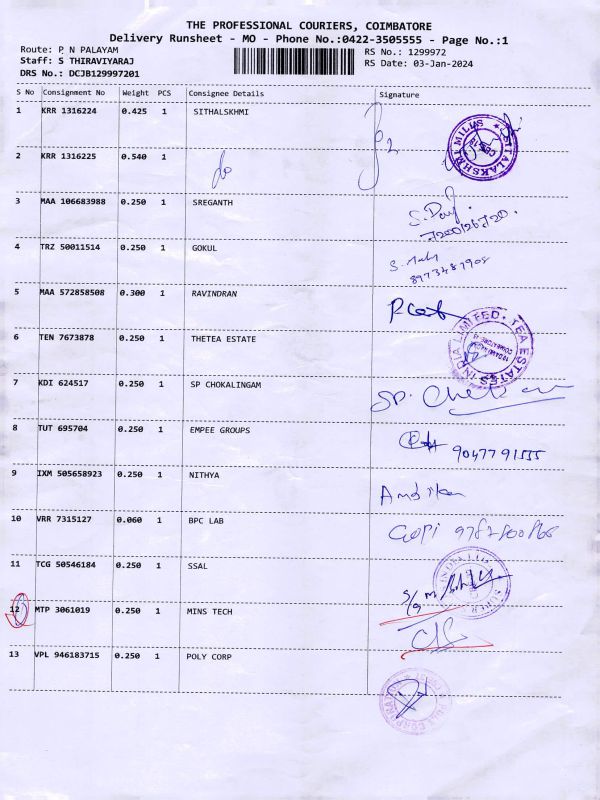 THE PROFESSIONAL COURIERS, COIMBATORE
Delivery Runsheet - MO - Phone No.:0422-3505555 - Page No.:1
Route: P N PALAYAM
RS No.: 1299972
Staff: S THIRAVIYARAJ
RS Date: 03-Jan-2024
DRS No.: DCJB129997201
S No Consignment No Weight PCS Consignee Details Signature
1 KRR 1316224 0.425 1 SITHALSKHMI
SITALAKSHMI MILLS
2 KRR 1316225 0.540 1
3 MAA 106683988 0.250 1 SREGANTH
4 TRZ 50011514 0.250 1 GOKUL
8973487908
5 MAA 572858508 0.300 1 RAVINDRAN
6 TEN 7673878 0.250 1 THETEA ESTATE
TEA ESTATES INDIA LIMITED
7 KDI 624517 0.250 1 SP CHOKALINGAM
SP.
8 TUT 695704 0.250 1 EMPEE GROUPS
9047791555
9 IXM 505658923 0.250 1 NITHYA
10 VRR 7315127 0.060 1 BPC LAB
Gopi
11 TCG 50546184 0.250 1 SSAL
12 MTP 3061019 0.250 1 MINS TECH
13 VPL 946183715 0.250 1 POLY CORP